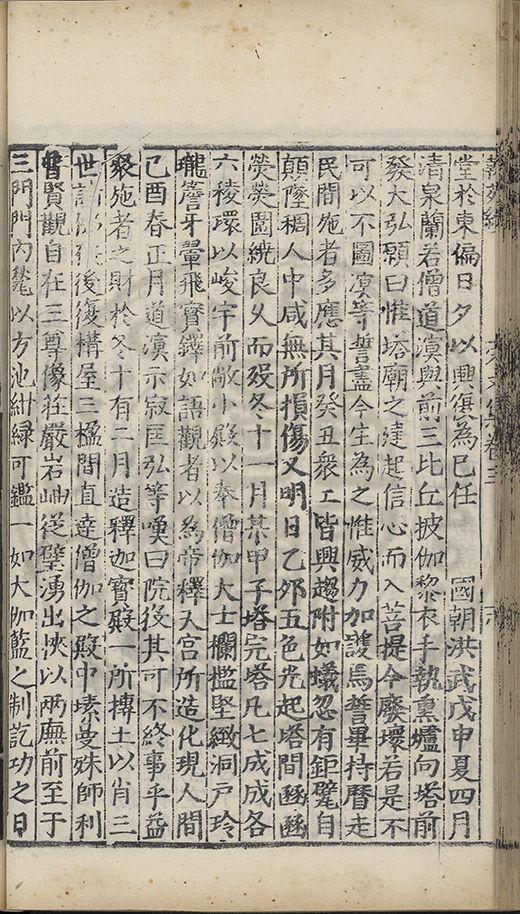 集卷三
堂於東偏日夕以興復為已任　國朝洪武戊申夏四月
清泉蘭若僧道溟與前三比丘披伽黎衣手執熏爐向塔前
發大弘願曰惟塔廟之建起信心而入菩提今廢壞若是不
可以不圖溟等誓盡今生為之惟威力加護焉誓畢持曆走
民間施者多應其月癸丑衆工皆興趨附如蟻忽有鉅甓自
顛墜稠人中咸無所損傷又明日乙夘五色光起塔間
熒熒圍繞良乆而歿冬十一月某甲子塔完塔凡七成成各
六稜環以峻宇前敞小殿以奉僧伽大士欄楯堅緻洞户玲
瓏簷牙翬飛寳鐸如語觀者以為帝釋天宫所造化現人間
己酉春正月道溟示寂匡弘等嘆曰院役其可不終事乎益
聚施者之財於冬十有二月造釋迦寳殿一所摶土以肖三
世後復構屋三楹間直達僧伽之殿中塐曼殊師利
普賢觀自在三尊像莊嚴岩岫從壁湧出挾以兩廡前至于
三門門内甃以方池紺緑可鑑一如大伽藍之制訖功之日